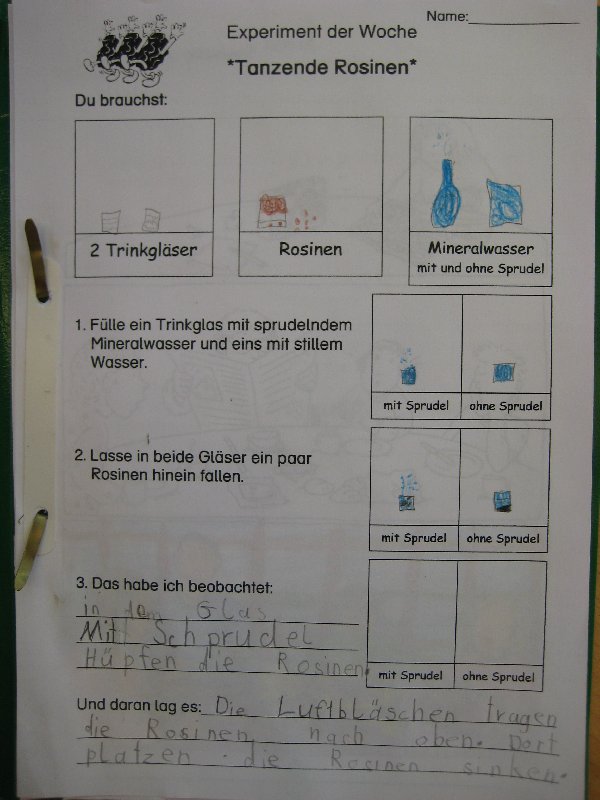 Name:
Experiment der Woche
*Tanzende Rosinen*
Du brauchst:
2 Trinkgläser
Rosinen
Mineralwasser
mit und ohne Sprudel
1. Fülle ein Trinkglas mit sprudelndem
Mineralwasser und eins mit stillem
Wasser.
mit Sprudel
ohne Sprudel
2. Lasse in beide Gläser ein paar
Rosinen hinein fallen.
mit Sprudel
ohne Sprudel
3. Das habe ich beobachtet:
in dem Glas
Mit Schprudel
Hüpfen die Rosinen.
mit Sprudel
ohne Sprudel
Und daran lag es: Die Luftbläschen tragen
die Rosinen nach oben. Dort
platzen. die Rosinen sinken.